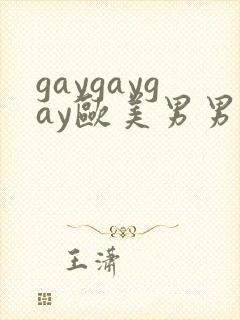 gaygayg
ay歐美男男
王瀟